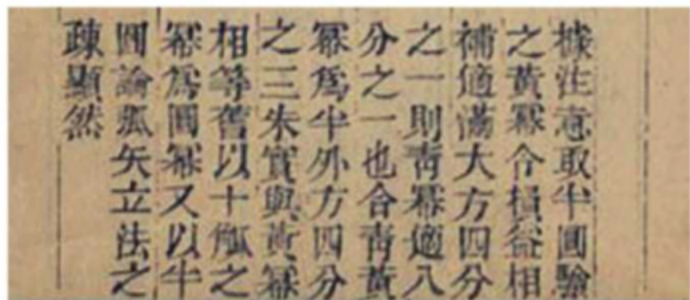 據注意取半圓驗
之黃冪令損益相
補適滿大方四分
之一則靑冪適八
分之一也合靑黃
冪爲半外方四分
之三朱實與黃冪
相等舊以十觚之
冪爲圓冪又以半
圓論弧矢立法之
疎顯然